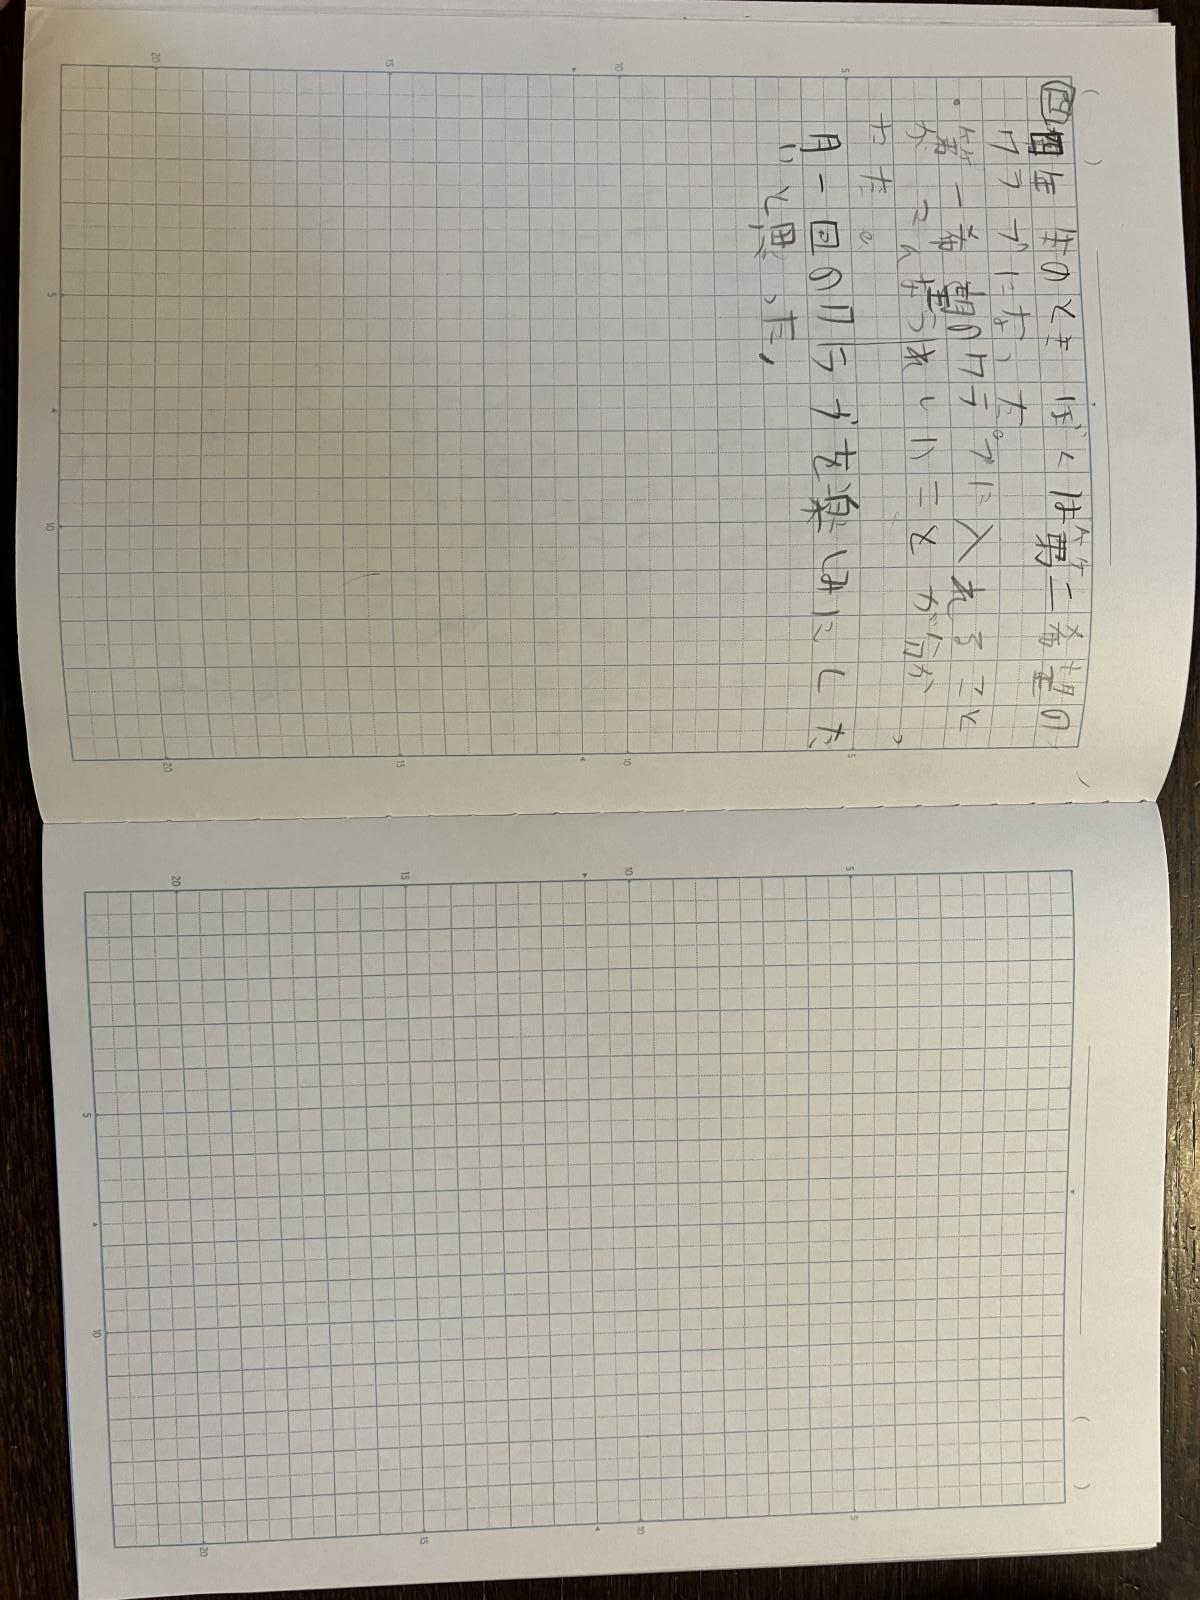 四四年生のときぼくは第二希望の
クラブになった。
・第一希望のクラブに入れること
ができなうれしいことが分か
った。
月一回のクラブを楽しみにした
いと思った。